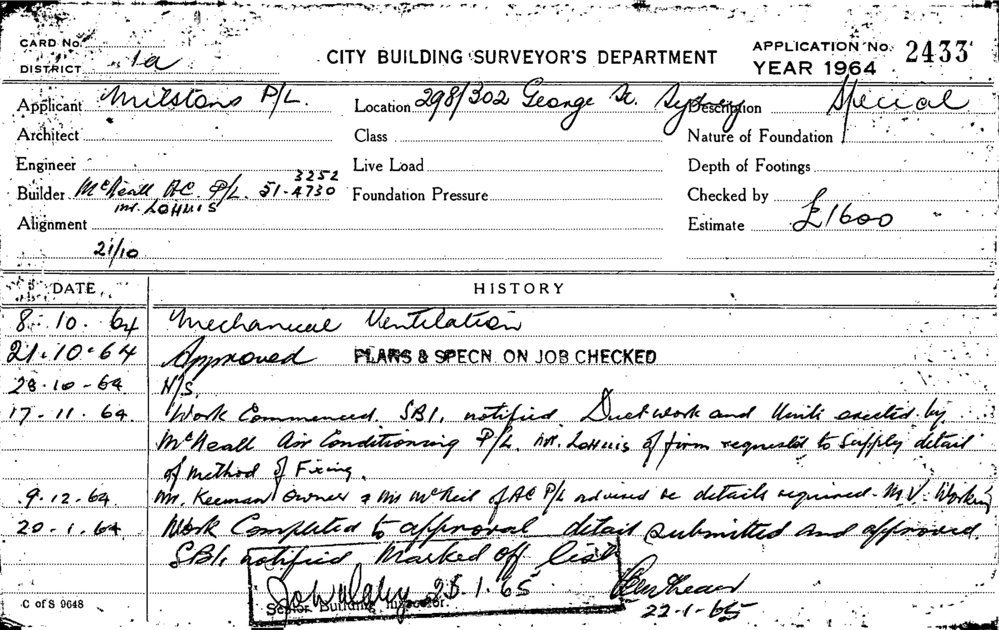 CARD No.
DISTRICT 1a
CITY BUILDING SURVEYOR'S DEPARTMENT
APPLICATION No. 2433
YEAR 1964
Applicant Milstons P/L. Location 298/302 George St. Sydney Description Special
Architect Class Nature of Foundation
Engineer Live Load Depth of Footings
3252
Builder McNeall A.C. P/L. 51-4730 Foundation Pressure Checked by
Mr. LOHUIS
Alignment Estimate £1600
21/10
DATE HISTORY
8. 10. 64 Mechanical Ventilation
21.10.64 Approved PLANS & SPECN. ON JOB CHECKED
28.10-64 N/S.
17-11. 64. Work Commenced. SBI. notified Ductwork and Units erected by
McNeall Air Conditioning P/L. Mr. LOHUIS of firm requested to supply detail
of Method of Fixing.
9.12.64 Mr. Keeman owner & Mr McNeil of AC P/L advised re details required. M.V. Working
20-1.64 Work Completed to approval detail submitted and approved.
SBI. notified Marked off list
25.1.65
Senior Building Inspector.
22-1-65
C of S 9648